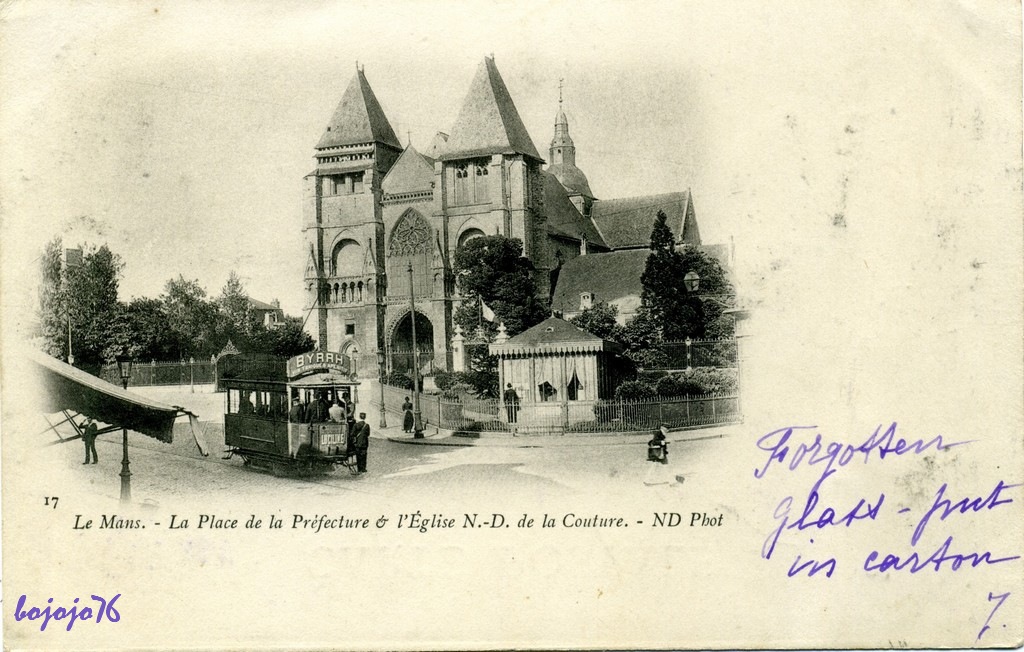 BYRRH
17
Le Mans. - La Place de la Préfecture & l'Église N.-D. de la Couture. - ND Phot
Forgotten
glass - put
in carton
7.
bojojo76